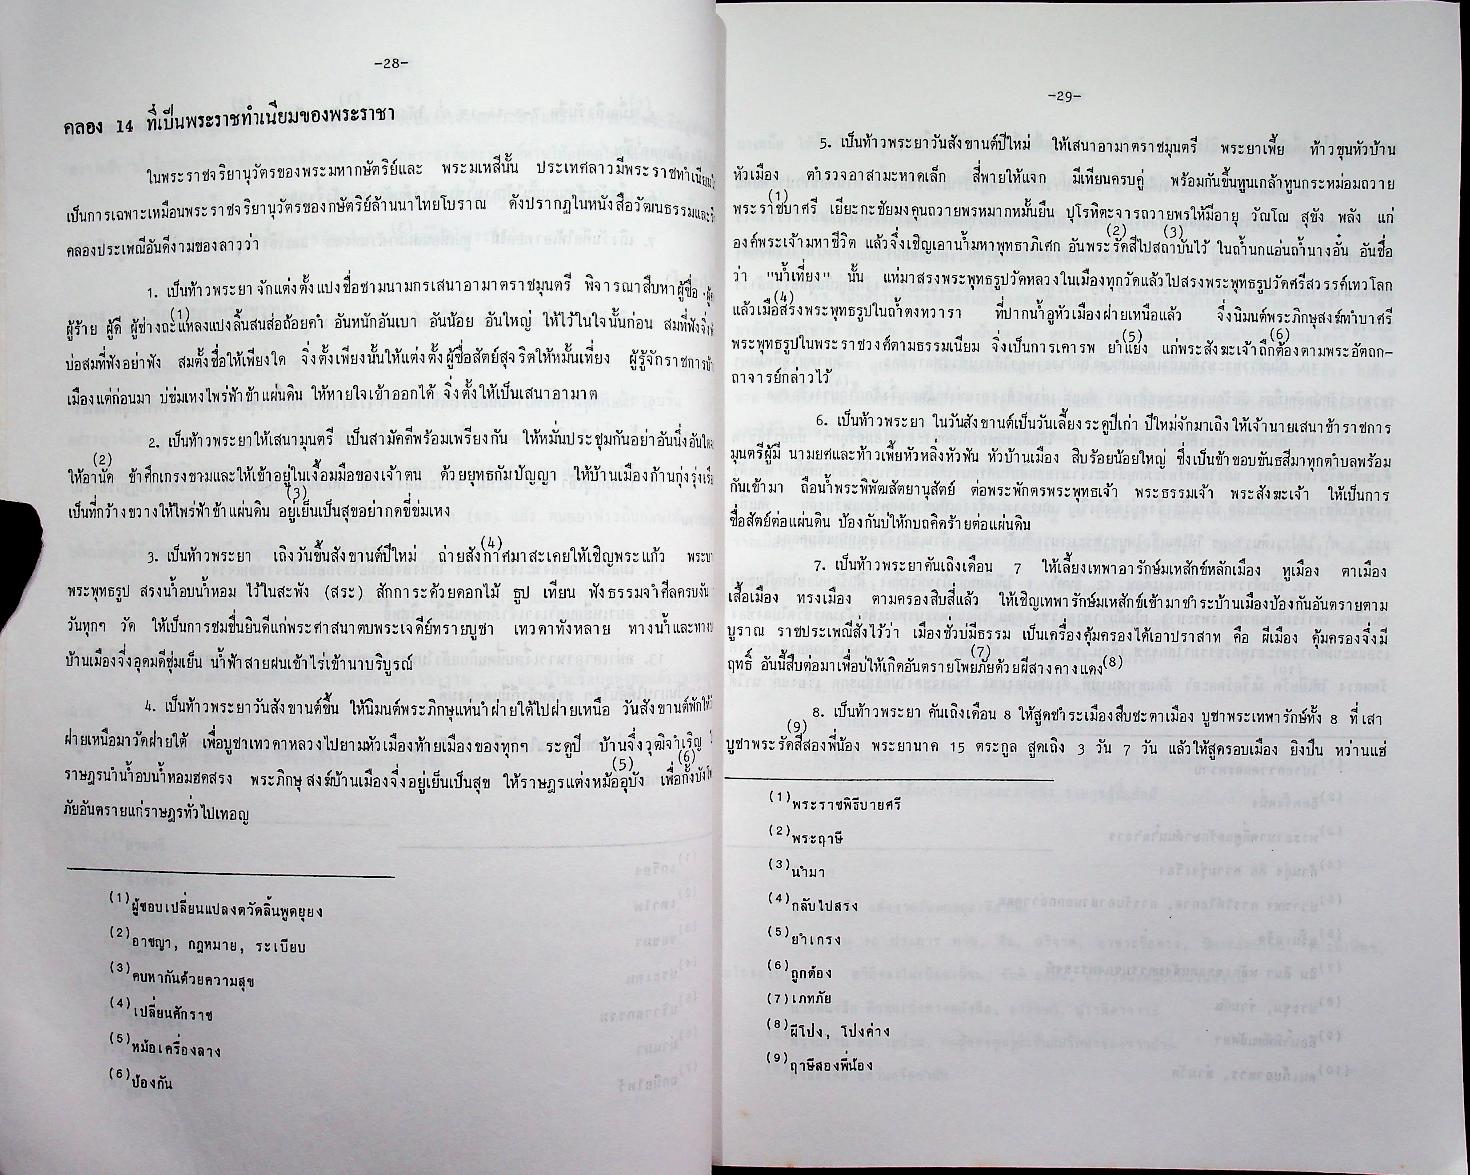 -28-
คลอง 14 ที่เป็นพระราชทำเนียมของพระราชา
ในพระราชจริยานุวัตรของพระมหากษัตริย์และ พระมเหสีนั้น ประเทศลาวมีพระราชทำเนียม
เป็นการเฉพาะเหมือนพระราชจริยานุวัตรของกษัตริย์ล้านนาไทยโบราณ ดังปรากฏในหนังสือวัฒนธรรมและ
คลองประเพณีอันดีงามของลาวว่า
1. เป็นท้าวพระยาจักแต่งตั้งแปงชื่อชามนามกรเสนาอามาตราชมุนตรี พิจารณาสืบหาผู้ชื่อ
ผู้ร้าย ผู้ดี ผู้ช่างถะแหลงแปงลิ้นสนส่อถ้อยคำ(1) อันหนักอันเบา อันน้อย อันใหญ่ ให้ไว้ในใจนั้นก่อน สมที่ฟังจิ่ง
บ่อสมที่ฟังอย่าฟัง สมตั้งชื่อให้เพียงใด จิ่งตั้งเพียงนั้นให้แต่งตั้งผู้ชื่อสัตย์สุจริตให้หมั้นเที่ยง ผู้รู้จักราชการ
เมืองแต่ก่อนมา บ่ข่มเหงไพร่ฟ้าข้าแผ่นดิน ให้หายใจเข้าออกได้ จิ่งตั้งให้เป็นเสนาอามาต
2. เป็นท้าวพระยาให้เสนามุนตรี เป็นสามัคคีพร้อมเพรียงกัน ให้หมั่นประชุมกันอย่าอันนึ่งอันใด
ให้อานัด(2) ข้าศึกเกรงขามและให้เข้าอยู่ในเงื้อมมือของเจ้าตน ด้วยยุทธกัมปัญญา ให้บ้านเมืองก้านกุ่งรุ่ง
เป็นที่กว้างขวางให้ไพร่ฟ้าข้าแผ่นดิน อยู่เย็นเป็นสุข(3)อย่ากดขี่ข่มเหง
3. เป็นท้าวพระยา เถิงวันขึ้นสังขานต์ปีใหม่ ถ่ายสังกาศ(4)มาสะเคยให้เชิญพระแก้ว
พระพุทธรูป สรงน้ำอบน้ำหอม ไว้ในสะพัง (สระ) สักการะด้วยดอกไม้ ธูป เทียน ฟังธรรมจำศีลครบงัน
วันทุกๆ วัด ให้เป็นการชมชื่นยินดีแก่พระศาสนาตบพระเจดีย์ทรายบูชา เทวดาทังหลาย ทางน้ำและทาง
บ้านเมืองจึ่งอุดมดีชุ่มเย็น น้ำฟ้าสายฝนเข้าไร่เข้านาบริบูรณ์
4. เป็นท้าวพระยาวันสังขานต์ขึ้น ให้นิมนต์พระภิกษุแห่นำฝ่ายใต้ไปฝ่ายเหนือ วันสังขานต์พัก
ฝ่ายเหนือมาวัดฝ่ายใต้ เพื่อบูชาเทวดาหลวงไปยามหัวเมืองท้ายเมืองของทุกๆ ระดูปี บ้านจิ่งวุฒิจำเริญ
ราษฎรนำน้ำอบน้ำหอมฮดสรง พระภิกษุสงฆ์บ้านเมืองจึ่งอยู่เย็นเป็นสุข ให้ราษฎรแต่งหม้ออุบัง(5) เพื่อกั้งบัง(6)
ภัยอันตรายแก่ราษฎรทั่วไปเทอญ
(1)ผู้ชอบเปลี่ยนแปลงตวัดลิ้นพูดยุยง
(2)อาชญา, กฎหมาย, ระเบียบ
(3)คบหากันด้วยความสุข
(4)เปลี่ยนศักราช
(5)หม้อเครื่องลาง
(6)ป้องกัน
-29-
5. เป็นท้าวพระยาวันสังขานต์ปีใหม่ ให้เสนาอามาตราชมุนตรี พระยาเพี้ย ท้าวขุนหัวบ้าน
หัวเมือง ตำรวจอาสามะหาดเล็ก สี่พายให้แจก มีเทียนครบคู่ พร้อมกันขึ้นทูนเกล้าทูนกระหม่อมถวาย
พระราชบาศรี(1) เยียะกะชัยมงคุนถวายพรหมากหมั้นยืน ปุโรหิตะจารถวายพรให้มีอายุ วัณโณ สุขัง พลัง แก่
องค์พระเจ้ามหาชีวิต แล้วจิ่งเชิญเอาน้ำมหาพุทธาภิเศก อันพระรัดสี(2)ไปสถาบัน(3)ไว้ ในถ้ำนกแอ่นถ้ำนางอั๋น อันชื่อ
ว่า "น้ำเที่ยง" นั้น แห่มาสรงพระพุทธรูปวัดหลวงในเมืองทุกวัดแล้วไปสรงพระพุทธรูปวัดศรีสวรรค์เทวโลก
แล้วเมือสรง(4)พระพุทธรูปในถ้ำตงหวารา ที่ปากน้ำอูหัวเมืองฝ่ายเหนือแล้ว จิ่งนิมนต์พระภิกษุสงฆ์ทำบาศรี
พระพุทธรูปในพระราชวงศ์ตามธรรมเนียม จิ่งเป็นการเคารพ ยำแยง(5) แก่พระสังฆะเจ้าถืกต้อง(6)ตามพระอัตถก-
ถาจารย์กล่าวไว้
6. เป็นท้าวพระยา ในวันสังขานต์เป็นวันเลี้ยงระดูปีเก่า ปีใหม่จักมาเถิงให้เจ้านายเสนาข้าราชการ
มุนตรีผู้มี นามยศและท้าวเพี้ยหัวหลิ่งหัวพัน หัวบ้านเมือง สิบร้อยน้อยใหญ่ ซึ่งเป็นข้าขอบขันธสีมาทุกตำบลพร้อม
กันเข้ามา ถือน้ำพระพิพัฒสัตยานุสัตย์ ต่อพระพักตรพระพุทธเจ้า พระธรรมเจ้า พระสังฆะเจ้า ให้เป็นการ
ชื่อสัตย์ต่อแผ่นดิน ป้องกันบ่ให้กบฏคิดร้ายต่อแผ่นดิน
7. เป็นท้าวพระยาคันเถิงเดือน 7 ให้เลี้ยงเทพาอารักษ์มเหสักข์หลักเมือง หูเมือง ตาเมือง
เสื้อเมือง ทรงเมือง ตามครองสิบสี่แล้ว ให้เชิญเทพารักษ์มเหสักข์เข้ามาชำระบ้านเมืองป้องกันอันตรายตาม
บูราณ ราชประเพณีสั่งไว้ว่า เมืองชั่วบ่มีธรรม เป็นเครื่องคุ้มครองได้เอาปราสาท คือ ผีเมือง คุ้มครองจิ่งมี
ฤทธิ์ อันนี้สืบต่อมาเพื่อบ่ให้เกิดอันตรายโพยภัย(7)ด้วยผีสางคางแดง(8)
8. เป็นท้าวพระยา คันเถิงเดือน 8 ให้สูดชำระเมืองสืบชะตาเมือง บูชาพระเทพารักษ์ทั้ง 8 ที่เสา
บูชาพระรัดสี(9)สองพี่น้อง พระยานาค 15 ตระกูล สูดเถิง 3 วัน 7 วัน แล้วให้สูดรอบเมือง ยิงปืน หว่านแฮ่
(1)พระราชพิธีบายศรี
(2)พระฤาษี
(3)นำมา
(4)กลับไปสรง
(5)ยำเกรง
(6)ถูกต้อง
(7)เภทภัย
(8)ผีโป่ง, โป่งค่าง
(9)ฤาษีสองพี่น้อง